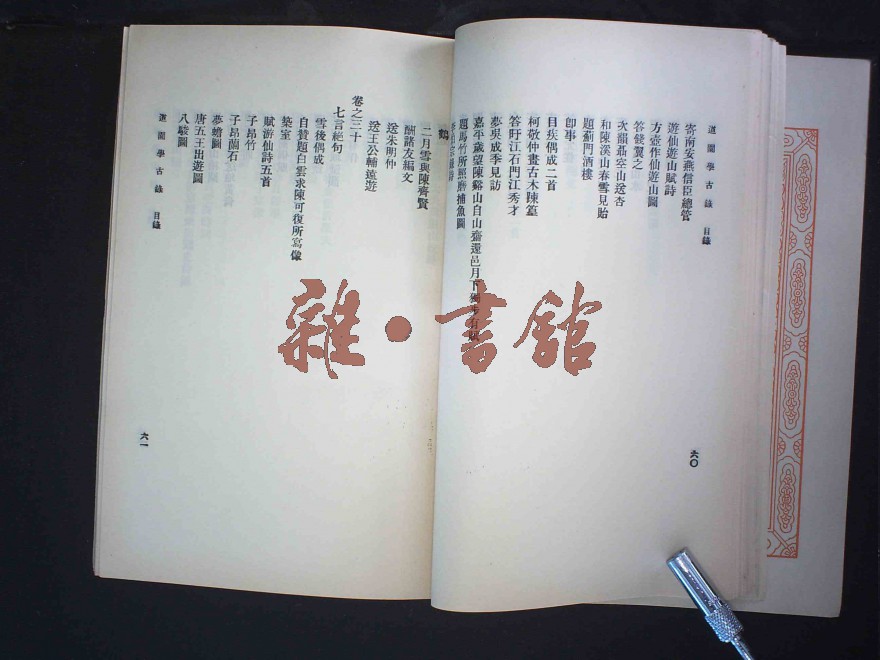 道園學古錄 目錄
寄南安燕信臣總管
遊仙遊山賦詩
方壺作仙遊山圖
答錢翼之
次韻聶空山送杏
和陳溪山春雪見貽
題薊門酒樓
卽事
目疾偶成二首
柯敬仲畫古木踈篁
答旴江石門江秀才
夢吳成季見訪
嘉平歲望陳谿山自山齋還邑月下
題馬竹所照磨捕魚圖
六〇
鶴
二月雪與陳齊賢
酬諸友編文
送朱明仲
送王公輔遠遊
卷之三十
七言絕句
雪後偶成
自贊題白雲求陳可復所寫像
築室
賦游仙詩五首
子昂竹
子昂蘭石
夢蟾圖
唐五王出遊圖
八駿圖
道園學古錄 目錄
六一
雜·書館